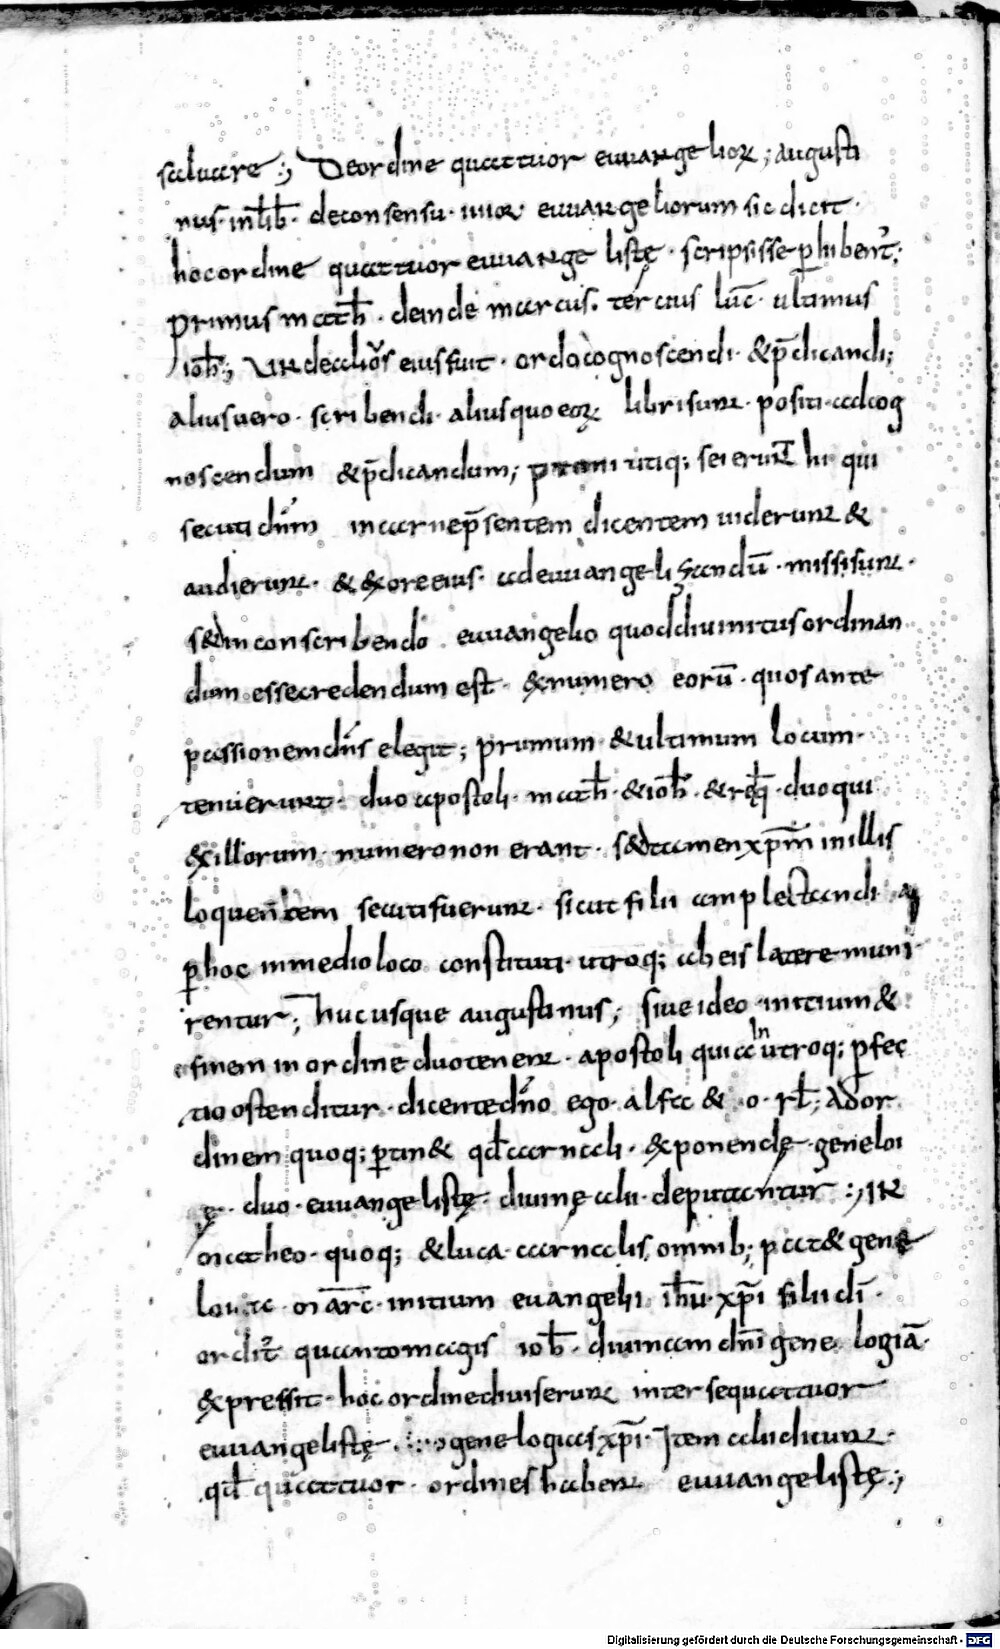 saluare :, De ordine quattuor euuangelioꝝ ; augusti
nus · in lib̄ · de consensu · iiiior euuangeliorum sic dicit ·
hoc ordine quattuor euuangelistę · scripsisse ꝑhibent̉ ;
primus math̄ · deinde marcus · tercius luc̄ · ultimus
ioh̄ :, Unde alios eius fuit · ordo cognoscendi · & p̄dicandi ;
alius uero · scribendi · alius quo eoꝝ libri sunt · positi · ad cog
noscendum & p̄dicandum ; primi utiq; sei erunt hi qui
secuti dn̄m in carne p̄sentem dicentem uiderunt &
audierunt · & ex ore eius · ad euuangelizandū · missi sunt ·
sed in conscribendo euuangelio quod diuinitus ordinan
dum esse credendum est · ex numero eorū · quos ante
passionem dn̄s elegit ; primum · & ultimum locum ·
tenuerunt · duo apostoli · math̄ · & ioh̄ · & rel̄q · duo qui
ex illorum · numero non erant · sed tamen xp̄m in illis
loquentem secuti fuerunt · sicut filii amplectandi ac
ꝑ hoc in medio loco constituti · utroq; ab eis latere muni
rentur ; hucusque augustinus ; siue ideo · initium &
finem in ordine duo tenent · apostoli quia in utroq; ꝑfec
tio ostenditur · dicente dn̄o ego · alfa & · o · rl̄ ; ad or
dinem quoq; ꝑtin& qd̄ carnali · exponendę · geneloi
ę · duo · euuangelistę · diuinę alii · deputantur :, in
matheo · quoq; & luca · carnalis omnib; pat& gene
loiac · marc̄ · initium euangelii ih̄u · xp̄i filii dī ·
ordit̉ quanto magis ioh̄ · diuinam dn̄i genelogiā ·
expressit · hoc ordine diuiserunt inter se quattuor
euuangelistę · genelogias xp̄i · Item alii dicunt ·
qd̄ quattuor · ordines habent euuangelistę :,
Digitalisierung gefördert durch die Deutsche Forschungsgemeinschaft - DFG